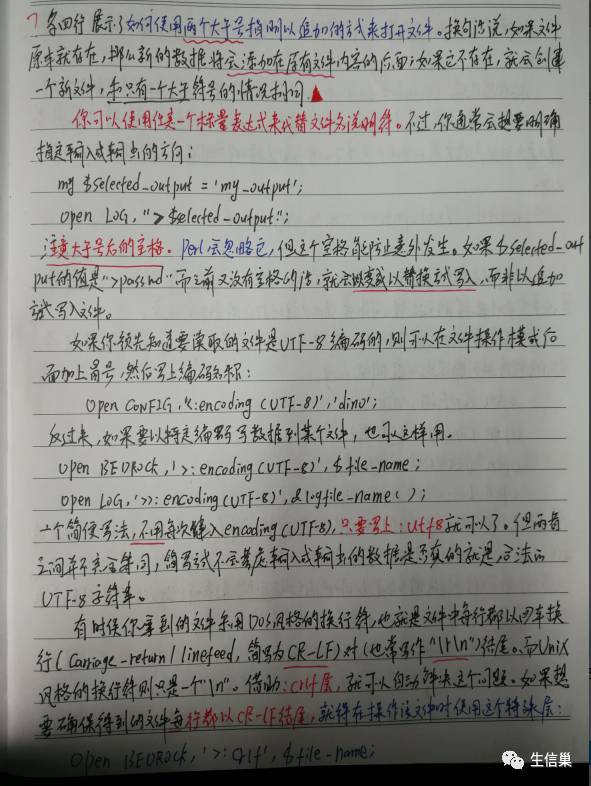 第四行展示了如何使用两个大于号指明以追加的方式来打开文件。换句话说,如果文件
原本就存在,那么新的数据将会添加在原有文件内容的后面;如果它不存在,就会创建
一个新文件,和只有一个大于符号的情况相同。
你可以使用任意一个标量表达式来代替文件名说明符。不过,你通常会想要明确
指定输入或输出的方向:
my $selected_output = 'my_output';
open LOG, "> $selected_output";
注意大于号后的空格。Perl会忽略它,但这个空格能防止意外发生。如果$selected_out
put的值是">passwd"而之前又没有空格的话,就会变成以替换方式写入,而非以追加
方式写入文件。
如果你预先知道要读取的文件是UTF-8编码的,则可以在文件操作模式后
面加上冒号,然后写上编码名称:
open CONFIG, '<:encoding(UTF-8)', 'dino';
反过来,如果要以特定编码写数据到某个文件,也可以这样用。
open BEDROCK, '>:encoding(UTF-8)', $file-name;
open LOG, '>>:encoding(UTF-8)', &logfile-name();
一个简便写法,不用每次键入encoding(UTF-8),只要写上:utf8就可以了。但两者
之间并不完全等同,简写方式不会考虑输入或输出的数据是否真的就是合法的
UTF-8字符串。
有时候你拿到的文件采用DOS风格的换行符,也就是文件中每行都以回车换
行(carriage-return/linefeed,简写为CR-LF)对(也常写作"\r\n")结尾。而Unix
风格的换行符则只是一个"\n"。借助:crlf层,就可以自动解决这个问题。如果想
要确保得到的文件每行都以CR-LF结尾,就得在操作该文件时使用这个特殊层:
open BEDROCK, '>:crlf', $file-name;
生信巢